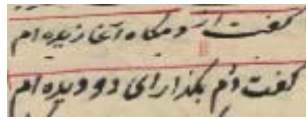 گفت از و مکاه آغازیده ام
گفت دام بگذار ای دو دیده ام